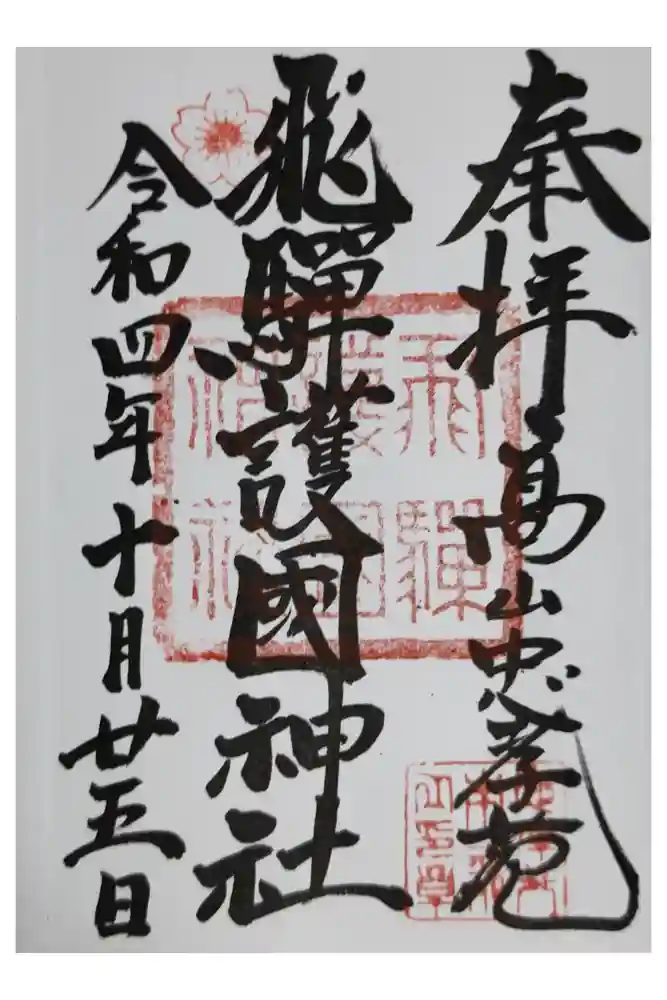 奉拝 高山忠孝苑
飛驒護國神社
令和四年十月廿五日
飛驒
護國
神社